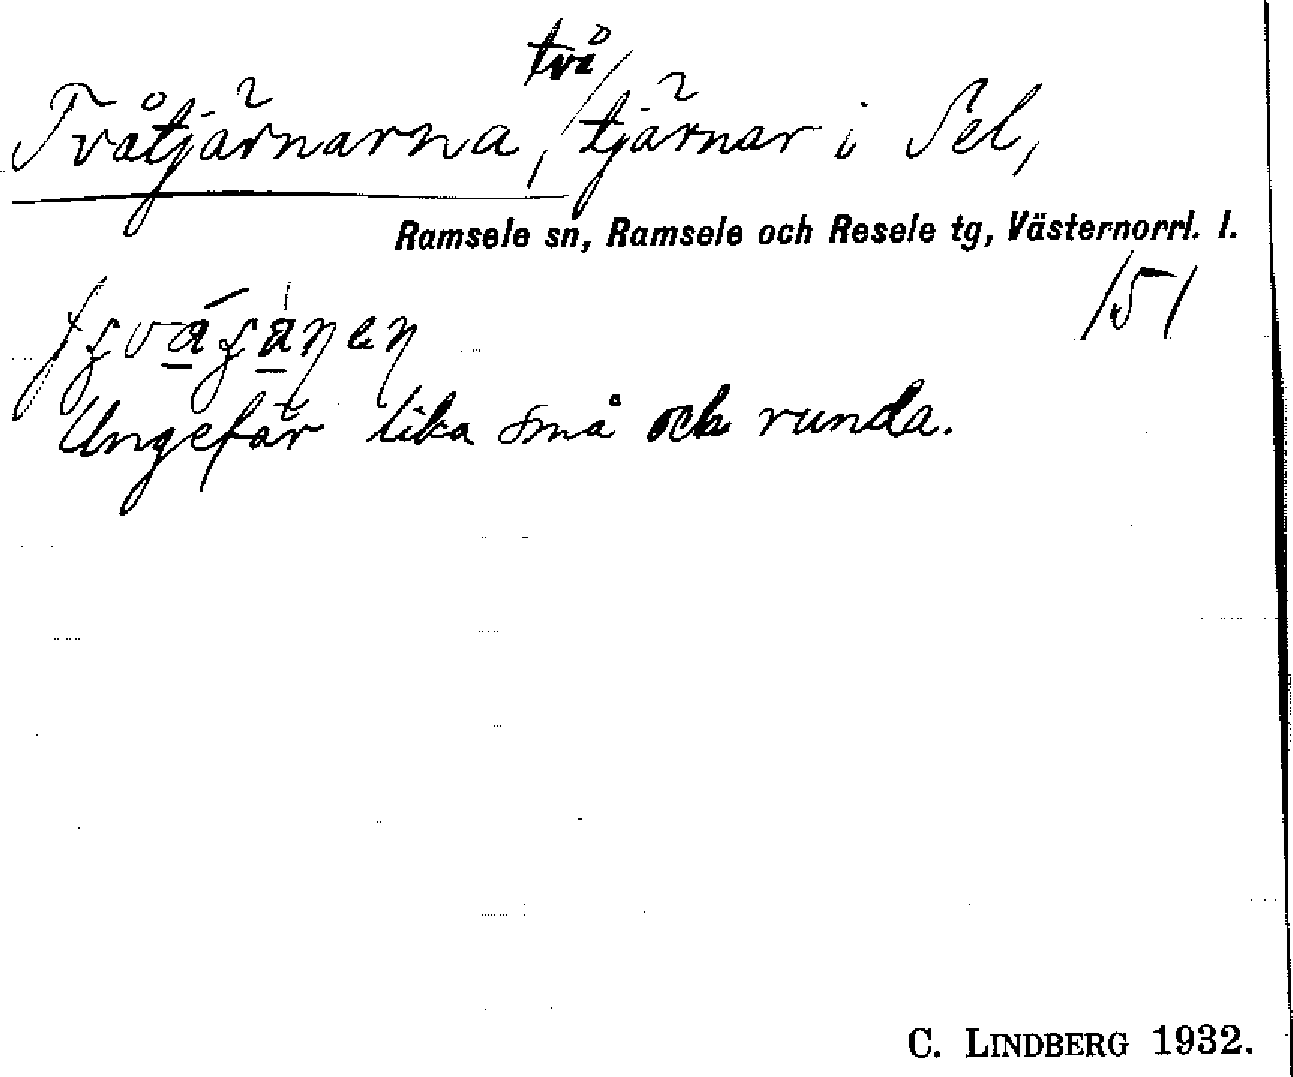 Tvåtjärnarna, två tjärnar i Sel,
Ramsele sn, Ramsele och Resele tg, Västernorrl. l.
151
Ungefär lika små och runda.
C. LINDBERG 1932.